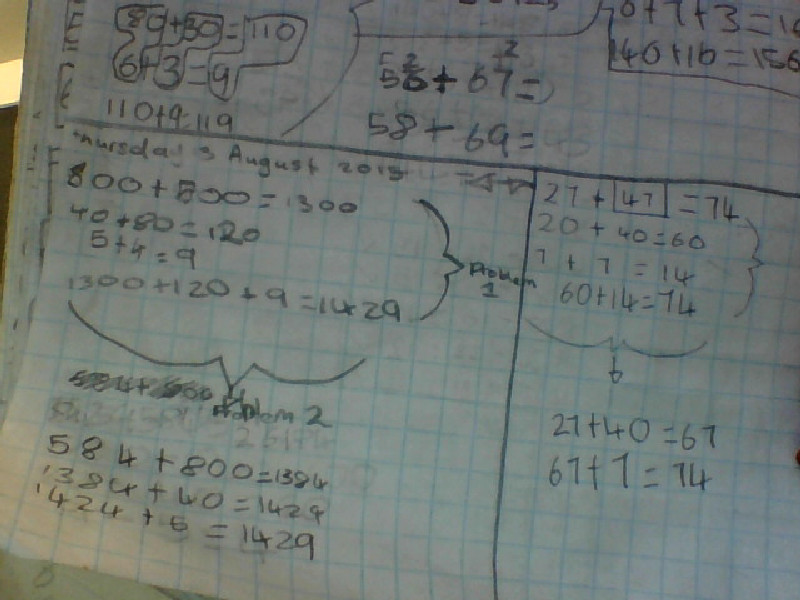 89+30=110
6+3=9
110+9=119
6+7+3=16
140+16=156
58+69=
Thursday 3 August 2013
800+500=1300
40+80=120
5+4=9
1300+120+9=1429
Problem 1
Problem 2
584+800=1384
1384+40=1424
1424+5=1429
27+47=74
20+40=60
7+7=14
60+14=74
27+40=67
67+7=74